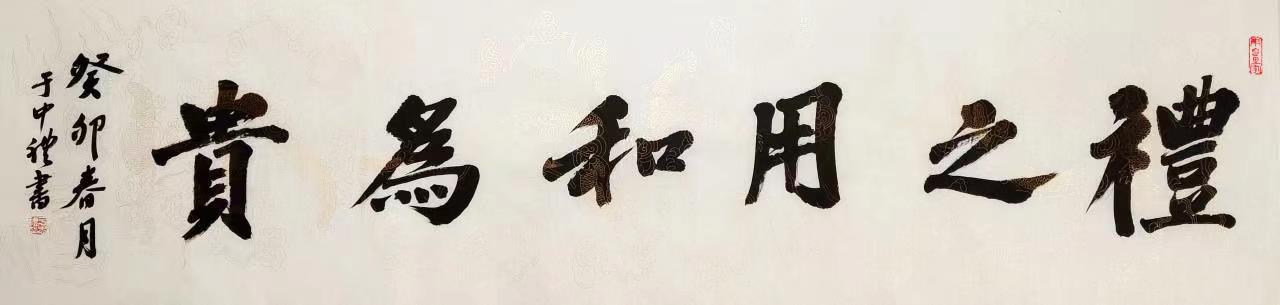 禮之用和為貴
癸卯春月
于中禮書